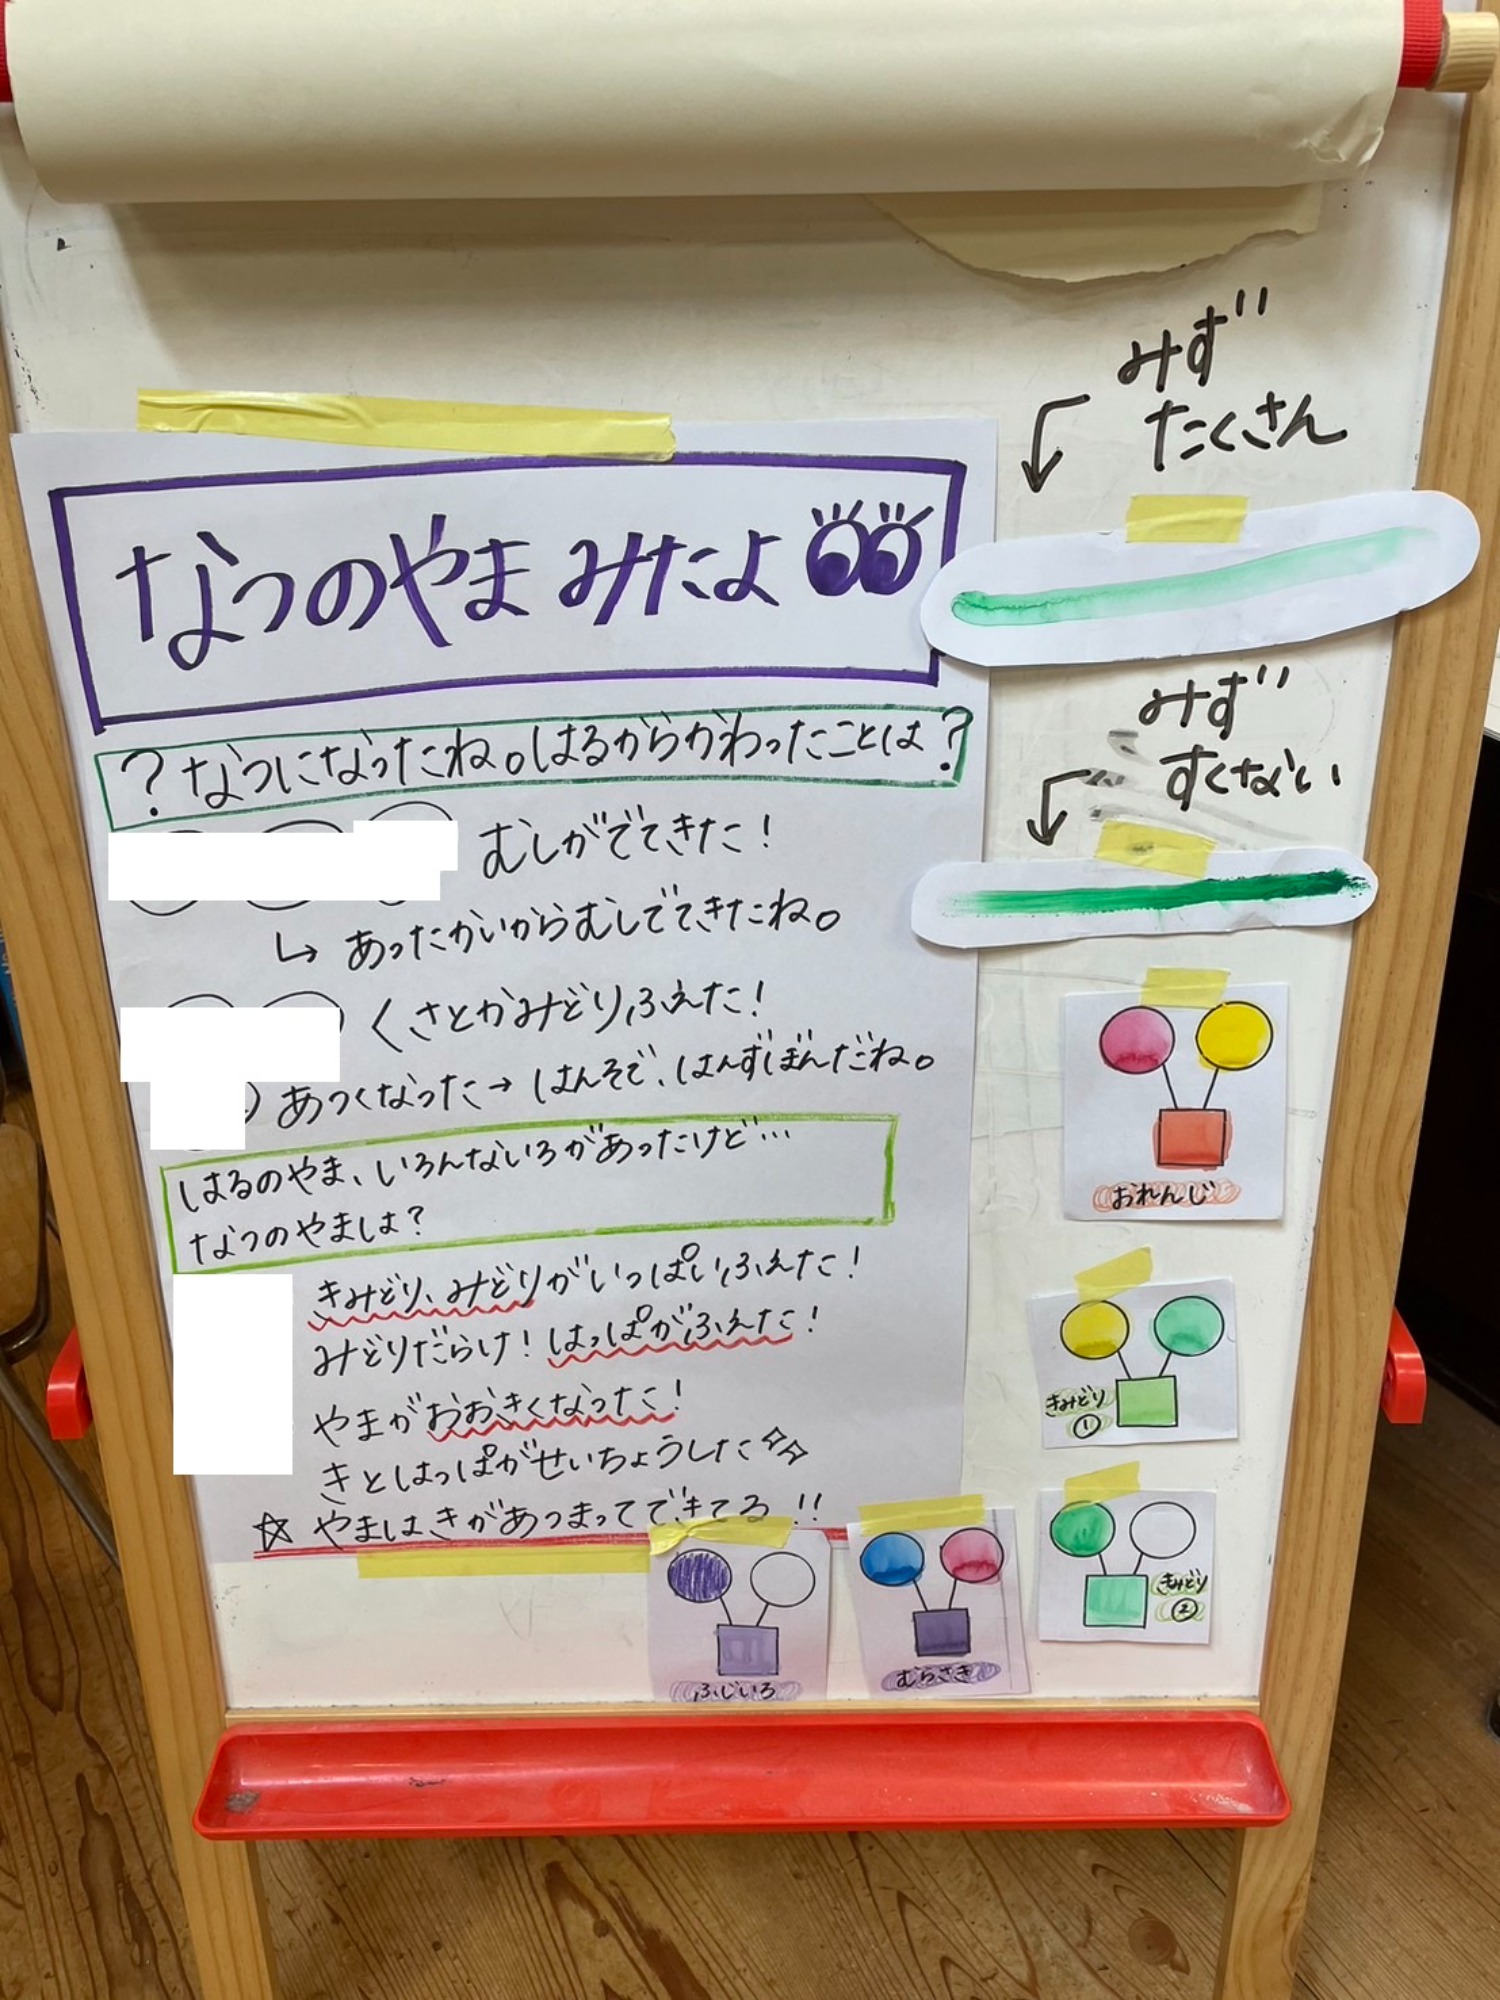 なつのやま みたよ
?なつになったね。はるからかわったことは?
むしがでてきた!
↳ あったかいからむしでてきたね。
くさとかみどりふえた!
あつくなった→はんそで、はんずぼんだね。
はるのやま、いろんないろがあったけど…
なつのやまは?
きみどり、みどりがいっぱいふえた!
みどりだらけ!はっぱがふえた!
やまがおおきくなった!
きとはっぱがせいちょうした
☆ やまはきがあつまってできてる!!
みず
たくさん
みず
すくない
おれんじ
きみどり
①
きみどり
②
ふじいろ
むらさき